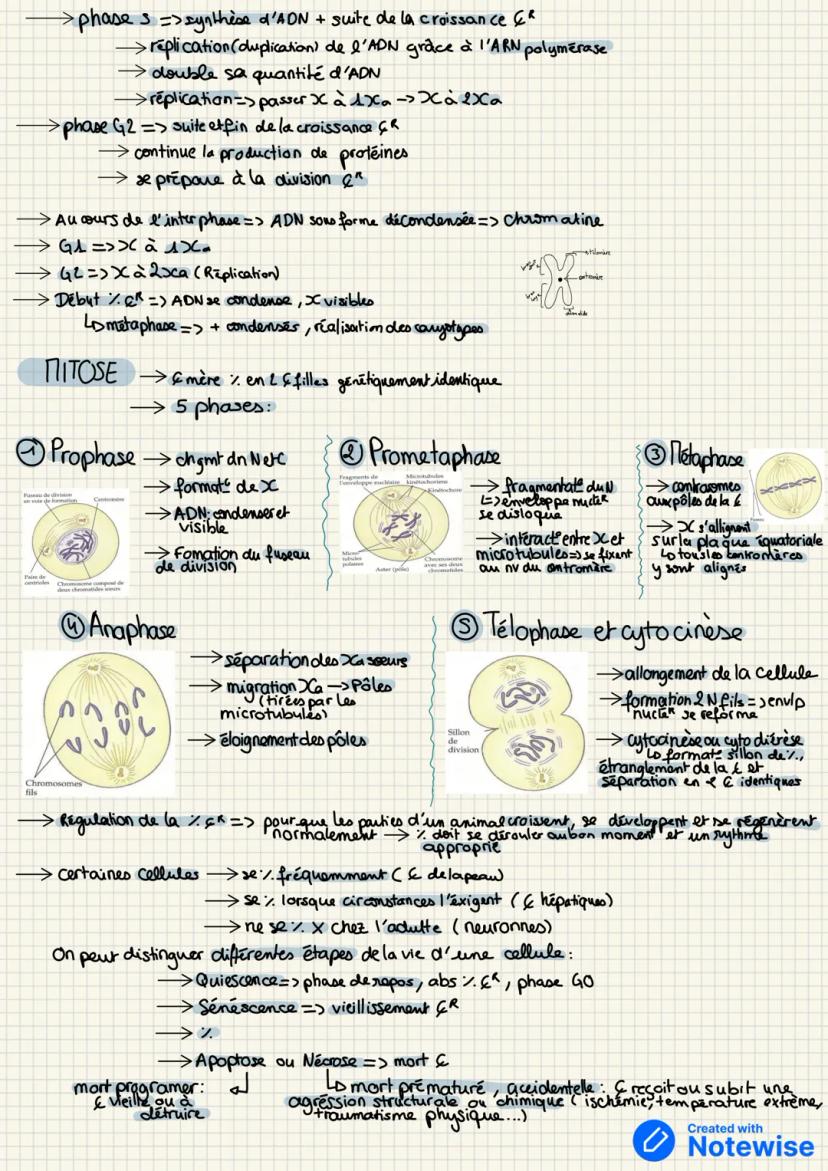 → phase S => synthèse d'ADN + suite de la croissance ₵ᴿ
→ réplication (duplication) de l'ADN grâce à l'ARN polymérase
→ double sa quantité d'ADN
→ réplication => passer X à 1Xa → X à 2Xa
→ phase G2 => suite et fin de la croissance ₵ᴿ
→ continue la production de protéines
→ se prépare à la division ₵ᴿ
→ Au cours de l'interphase => ADN sous forme décondensée => chromatine
→ G1 => X à 1Xa
→ G2 => X à 2Xa (Réplication)
→ Début % ₵ᴿ => ADN se condense, X visibles
↳ métaphase => + condensés, réalisation des caryotypes
MITOSE → ₵ mère % en 2 ₵ filles génétiquement identique
→ 5 phases:
① Prophase
→ chgmt dn N et C
→ formatº de X
→ ADN condenser et
visible
→ Fomation du fuseau
de division
Fuseau de division
en voie de formation
Centromère
Paire de
centrioles
Chromosome composé de
deux chromatides sœurs
② Prometaphase
Fragments de
l'enveloppe nucléaire
Microtubules
kinétochoriens
Kinétochore
Micro-
tubules
polaires
Aster (pôle)
Chromosome
avec ses deux
chromatides
→ fragmentatº du N
↳ => enveloppe nuclᴿ
se disloque
→ interactº entre X et
microtubules => se fixant
au nv du centromère
③ Métaphase
→ centrosomes
aux pôles de la ₵
→ X s'alignent
sur la plaque équatoriale
↳ tous les centromères
y sont alignés
④ Anaphase
Chromosomes
fils
→ séparation des Xa sœurs
→ migration Xa → Pôles
(tirées par les
microtubules)
→ éloignement des pôles
⑤ Télophase et cytocinèse
Sillon
de
division
→ allongement de la cellule
→ formation 2 N fils => envlp
nuclᴿ se reforme
→ cytocinèse ou cytodiérèse
↳ formatº sillon de %,
étranglement de la ₵ et
séparation en 2 ₵ identiques
→ Régulation de la % ₵ᴿ => pour que les parties d'un animal croissent, se développent et se régénèrent
normalement → % doit se dérouler au bon moment et un rythme
approprié
→ certaines cellules → se % fréquemment (₵ de la peau)
→ se % lorsque circonstances l'éxigent (₵ hépatiques)
→ ne se % X chez l'adulte (neuronnes)
On peut distinguer différentes étapes de la vie d'une cellule:
→ Quiescence => phase de repos, abs % ₵ᴿ, phase G0
→ Sénéscence => vieillissement ₵ᴿ
→ %
→ Apoptose ou Nécrose => mort ₵
mort programer:
₵ vieille ou à
détruire
↳ mort prématuré, accidentelle: ₵ reçoit ou subit une
agression structurale ou chimique (ischémie, température extrême,
traumatisme physique...)
Created with
Notewise